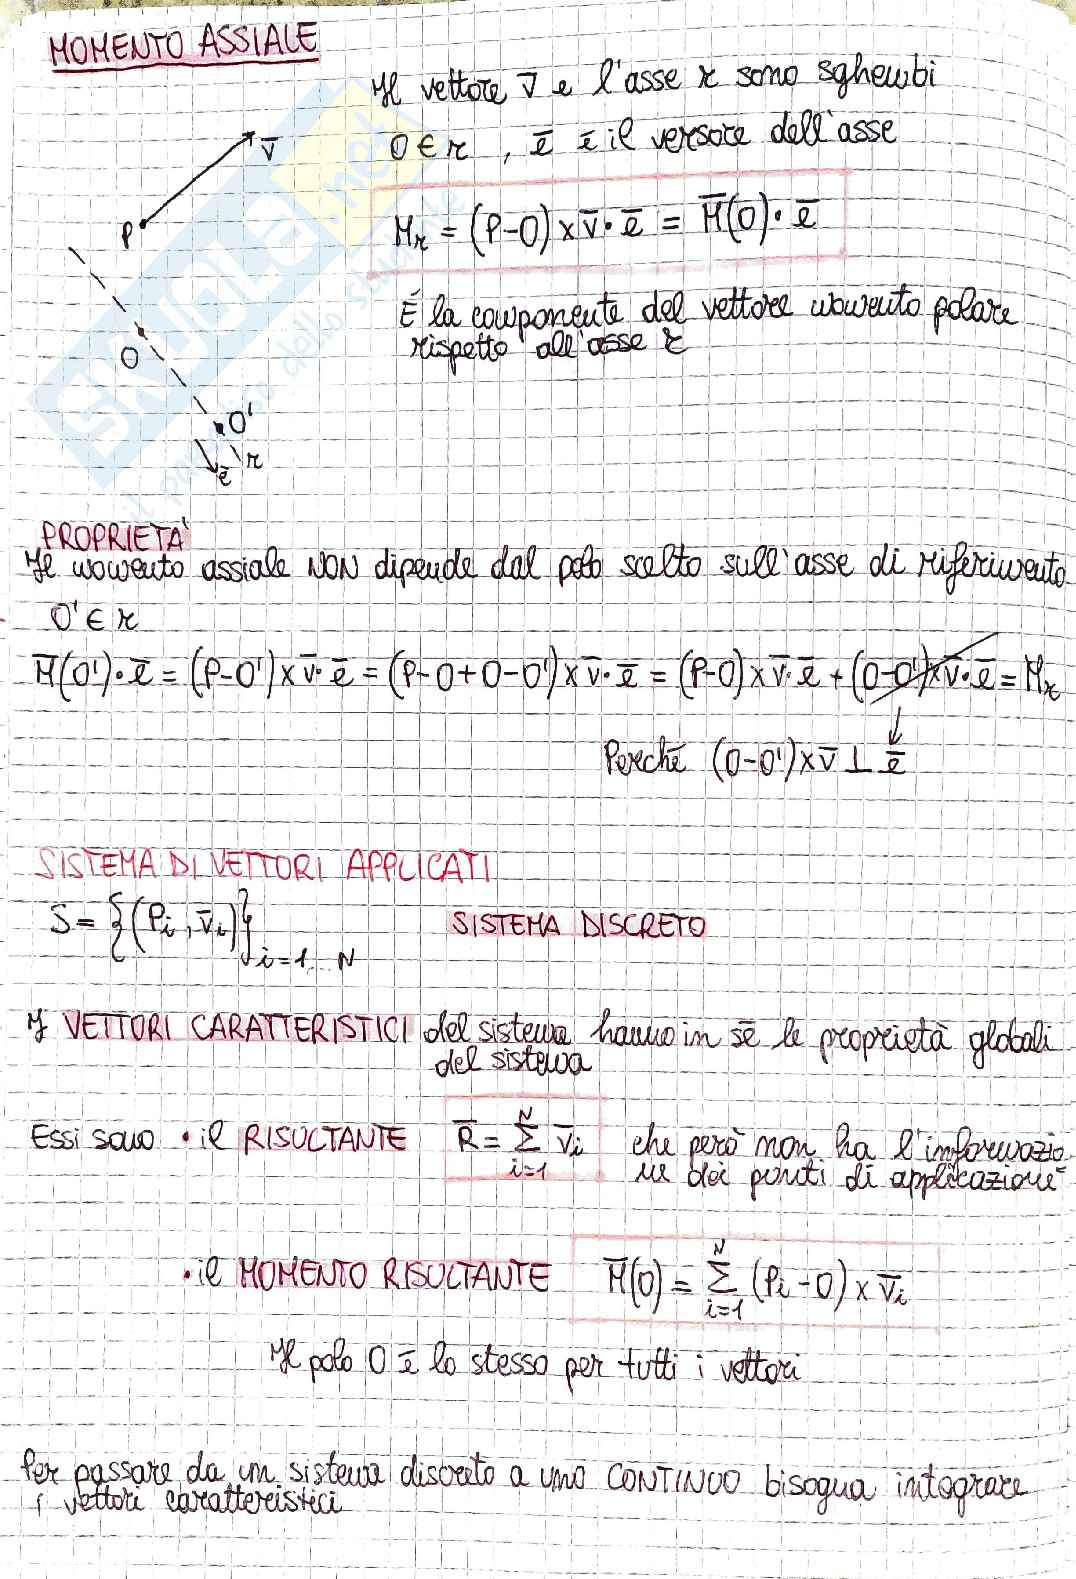 MOMENTO ASSIALE
Il vettore v̄ e l'asse r sono sghembi
O ∈ r , ē è il versore dell'asse
v̄
P
O
O'
ē
r
M_r = (P-O) × v̄ · ē = M̄(O) · ē
È la componente del vettore momento polare
rispetto all'asse r
SKUOLA.net
il paradiso dello studente
PROPRIETA'
Il momento assiale NON dipende dal polo scelto sull'asse di riferimento
O' ∈ r
M̄(O')·ē = (P-O') × v̄·ē = (P-O+O-O') × v̄·ē = (P-O) × v̄·ē + (O-O') × v̄·ē = M_r
Perché (O-O') × v̄ ⊥ ē
SISTEMA DI VETTORI APPLICATI
S = {(Pi, v̄i)} i=1...N
SISTEMA DISCRETO
I VETTORI CARATTERISTICI del sistema hanno in sé le proprietà globali
del sistema
Essi sono • il RISULTANTE R̄ = Σ_{i=1}^{N} v̄i che però non ha l'informazio
ne dei punti di applicazione
• il MOMENTO RISULTANTE M̄(O) = Σ_{i=1}^{N} (Pi - O) × v̄i
Il polo O è lo stesso per tutti i vettori
Per passare da un sistema discreto a uno CONTINUO bisogna integrare
i vettori caratteristici